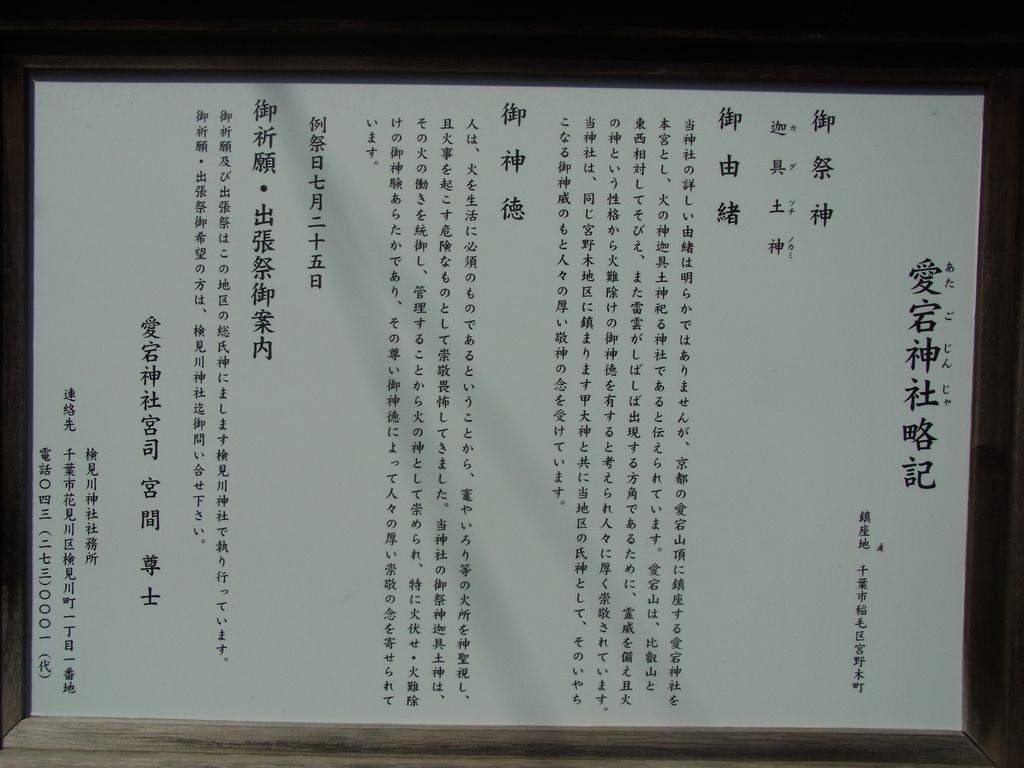 愛宕神社略記
あたごじんじゃ
鎮座地 千葉市稲毛区宮野木町
御祭神
迦具土神
カグツチノカミ
御由緒
当神社の詳しい由緒は明らかではありませんが、京都の愛宕山頂に鎮座する愛宕神社を
本宮とし、火の神迦具土神祀る神社であると伝えられています。愛宕山は、比叡山と
東西相対してそびえ、また雷雲がしばしば出現する方角であるために、霊威を備え且火
の神という性格から火難除けの御神徳を有すると考えられ人々に厚く崇敬されています。
当神社は、同じ宮野木地区に鎮まります甲大神と共に当地区の氏神として、そのいやち
こなる御神威のもと人々の厚い敬神の念を受けています。
御神徳
人は、火を生活に必須のものであるということから、竃やいろり等の火所を神聖視し、
且火事を起こす危険なものとして崇敬畏怖してきました。当神社の御祭神迦具土神は、
その火の働きを統御し、管理することから火の神として崇められ、特に火伏せ・火難除
けの御神験あらたかであり、その尊い御神徳によって人々の厚い崇敬の念を寄せられて
います。
例祭日七月二十五日
御祈願・出張祭御案内
御祈願及び出張祭はこの地区の総氏神にまします検見川神社で執り行っています。
御祈願・出張祭御希望の方は、検見川神社迄御問い合せ下さい。
愛宕神社宮司 宮間尊士
検見川神社社務所
連絡先 千葉市花見川区検見川町一丁目一番地
電話〇四三(二七三)〇〇〇一(代)